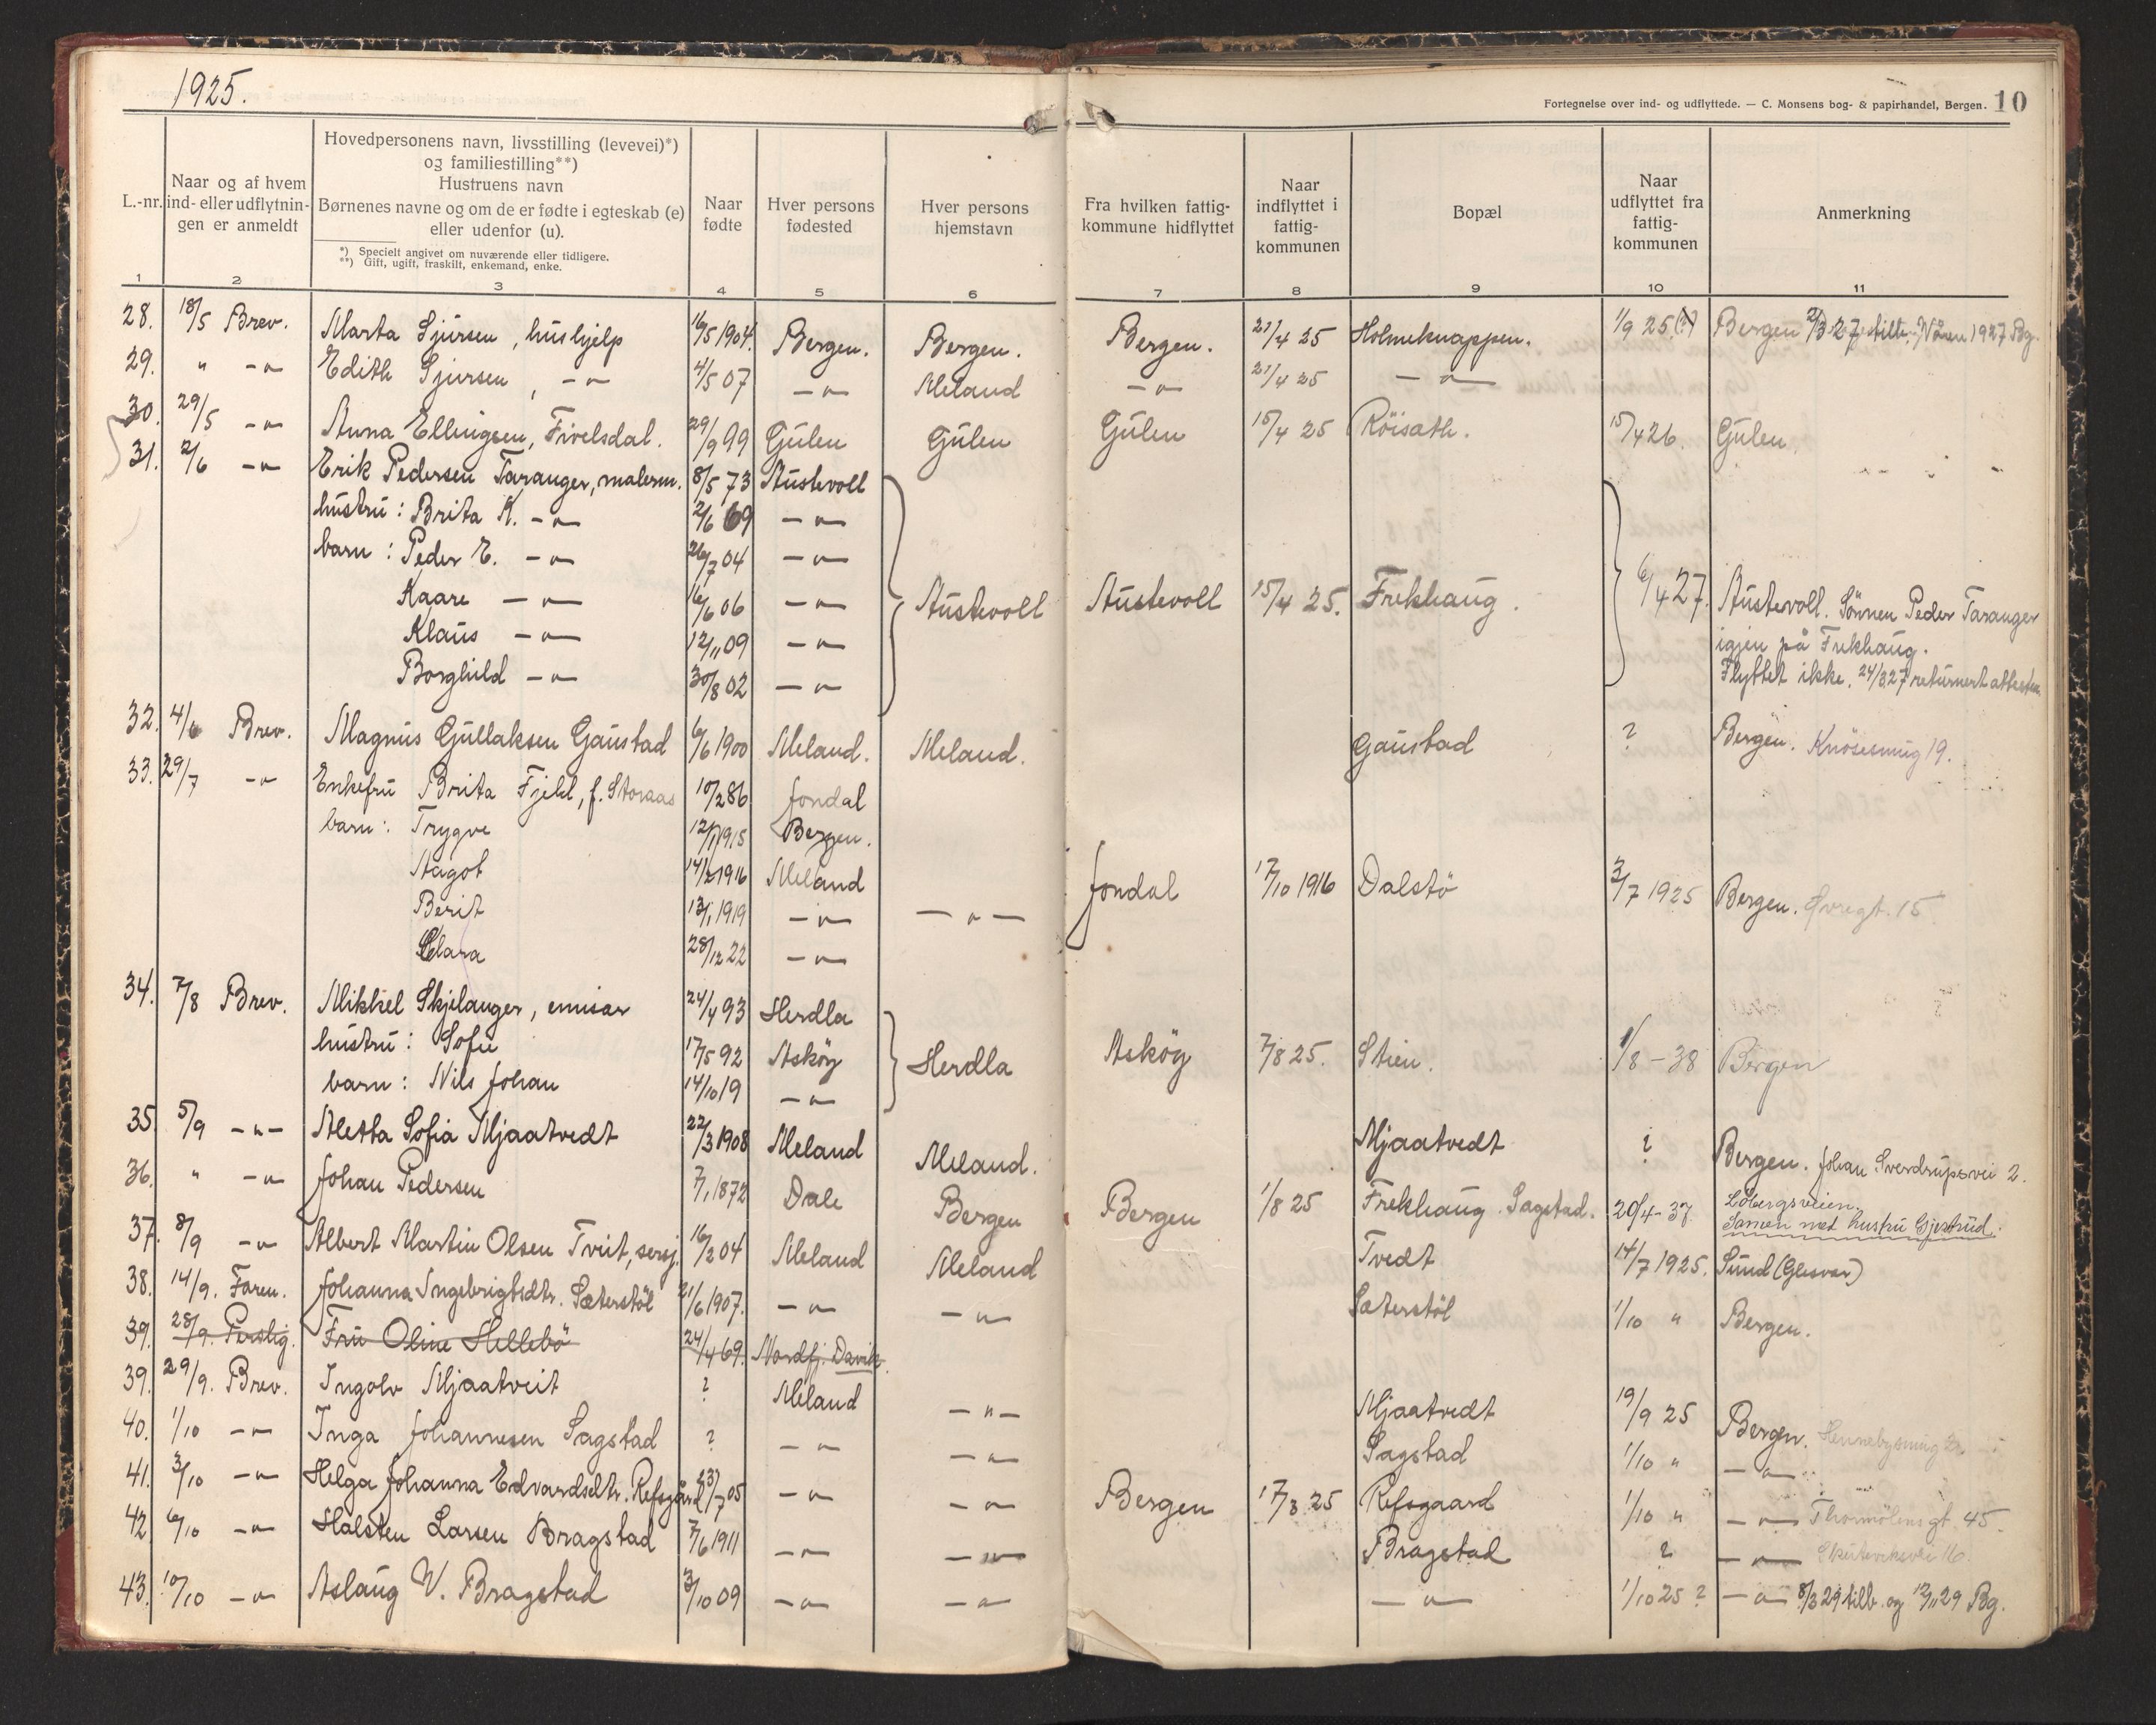 1925.
Fortegnelse over ind- og udflyttede. — C. Monsens bog- & papirhandel, Bergen. 10
L.-nr.
Naar og af hvem
ind- eller udflytnin-
gen er anmeldt
Hovedpersonens navn, livsstilling (levevei)*)
og familiestilling**)
Hustruens navn
Børnenes navne og om de er fødte i egteskab (e)
eller udenfor (u).
*) Specielt angivet om nuværende eller tidligere.
**) Gift, ugift, fraskilt, enkemand, enke.
Naar
fødte
Hver persons
fødested
Hver persons
hjemstavn
Fra hvilken fattig-
kommune hidflyttet
Naar
indflyttet i
fattig-
kommunen
Bopæl
Naar
udflyttet fra
fattig-
kommunen
Anmerkning
1 2 3 4 5 6 7 8 9 10 11
28. 18/5 Brev. Marta Sjursen, hushjelp 16/5 1904. Bergen. Bergen. Bergen. 21/4 25 Holmeknappen. 1/9 25 (?) Bergen 2/3 27 1927 Bg.
29. " -"- Edith Sjursen, -"- 4/5 07 -"- Meland -"- 21/4 25 -"-
30. 29/5 -"- Anna Ellingsen, Fivelsdal. 29/9 99 Gulen Gulen Gulen 15/4 25 Röisath. 15/4 26. Gulen
31. 2/6 -"- Erik Pedersen Taranger, malerm. 8/5 73 Austevoll
hustru: Brita K. -"- 2/6 69 -"-
barn: Peder E. -"- 26/7 04 -"-
Kaare -"- 16/6 06 -"- Austevoll Austevoll 15/4 25. Frekhaug. 6/4 27. Austevoll. Sönnen Peder Taranger
Klaus -"- 12/11 09 -"- igjen på Frekhaug.
Borghild -"- 30/8 02 -"- Flyttet ikke. 24/3 27 returnert attesten
32. 4/6 Brev. Magnus Gullaksen Gaustad 6/6 1900 Meland. Meland. Gaustad ? Bergen. Knösesmug 19.
33. 29/7 -"- Enkefru Brita Fjeld, f. Storaas 10/2 86 Jondal
barn: Trygve 12/1 1915 Bergen.
Aagot 14/2 1916 Meland Jondal 17/10 1916 Dalstö 3/7 1925 Bergen. Øvregt. 15
Berit 13/1 1919 -"- -"-
Clara 28/12 22 -"-
34. 7/8 Brev. Mikkel Skjelanger, emisær 24/4 93 Herdla
hustru: Sofie 17/5 92 Asköy Herdla Asköy 7/8 25. Stien. 1/8-38 Bergen
barn: Nils Johan 14/10 19 -"-
35 5/9 -"- Aletta Sofia Mjaatvedt 22/3 1908 Meland Meland. Mjaatvedt ? Bergen. Johan Sverdrupsvei 2.
36. " -"- Johan Pedersen 7/1 1872 Dale Bergen Bergen 1/8 25 Frekhaug. Sagstad. 20/4-37. Löbergsveien.
Samen med hustru Gjertrud.
37. 8/9 -"- Albert Martin Olsen Tveit, sersj. 16/2 04 Meland Meland Tvedt 14/7 1925. Sund (Glesvær)
38. 14/9. Faren. Johanna Ingebrigtsdtr. Sæterstöl 21/6 1907. -"- -"- Sæterstöl 1/10 " Bergen.
39. 28/9. Perslig. Fru Oline Hellebö 24/4 69. Nordfj. Davik.
39. 29/9. Brev. Ingolv Mjaatveit ? Meland -"- Mjaatvedt 19/9 25 Bergen.
40. 1/10 -"- Inga Johannesen Sagstad ? -"- -"- Sagstad 1/10 " -"-
41. 3/10 -"- Helga Johanna Edvardsdtr. Refsgård 23/7 05 -"- -"- Bergen 17/3 25 Refsgaard 1/10 " -"- Thormölensgt. 45.
42 6/10 -"- Halsten Larsen Bragstad 7/6 1911 -"- -"- Bragstad ? -"- Skuteviksvei 16.
43. 10/10 -"- Aslaug V. Bragstad 3/10 09 -"- -"- -"- 1/10 25 ? -"- 8/3 29 tilb. og 12/11 29 Bg.